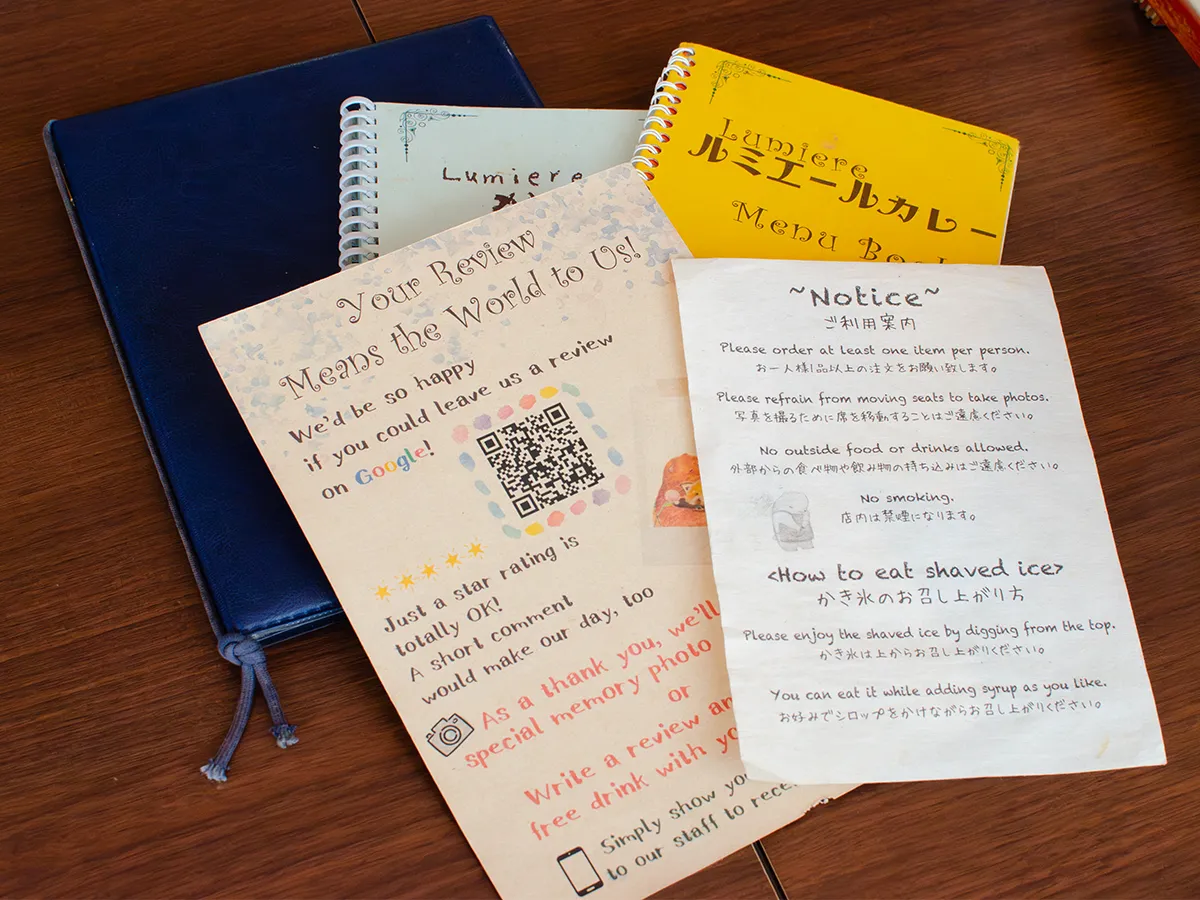 Lumiere
Lumiere
ルミエールカレー
Menu
Your Review
Means the World to Us!
We'd be so happy
if you could leave us a review
on Google!
Just a star rating is
totally OK!
A short comment
would make our day, too
As a thank you, we'll
special memory photo
or
Write a review
free drink with
Simply show
to our staff to
~Notice~
ご利用案内
Please order at least one item per person.
お一人様1品以上の注文をお願い致します。
Please refrain from moving seats to take photos.
写真を撮るために席を移動することはご遠慮ください。
No outside food or drinks allowed.
外部からの食べ物や飲み物の持ち込みはご遠慮ください。
No smoking.
店内は禁煙になります。
<How to eat shaved ice>
かき氷のお召し上がり方
Please enjoy the shaved ice by digging from the top.
かき氷は上からお召し上がりください。
You can eat it while adding syrup as you like.
お好みでシロップをかけながらお召し上がりください。